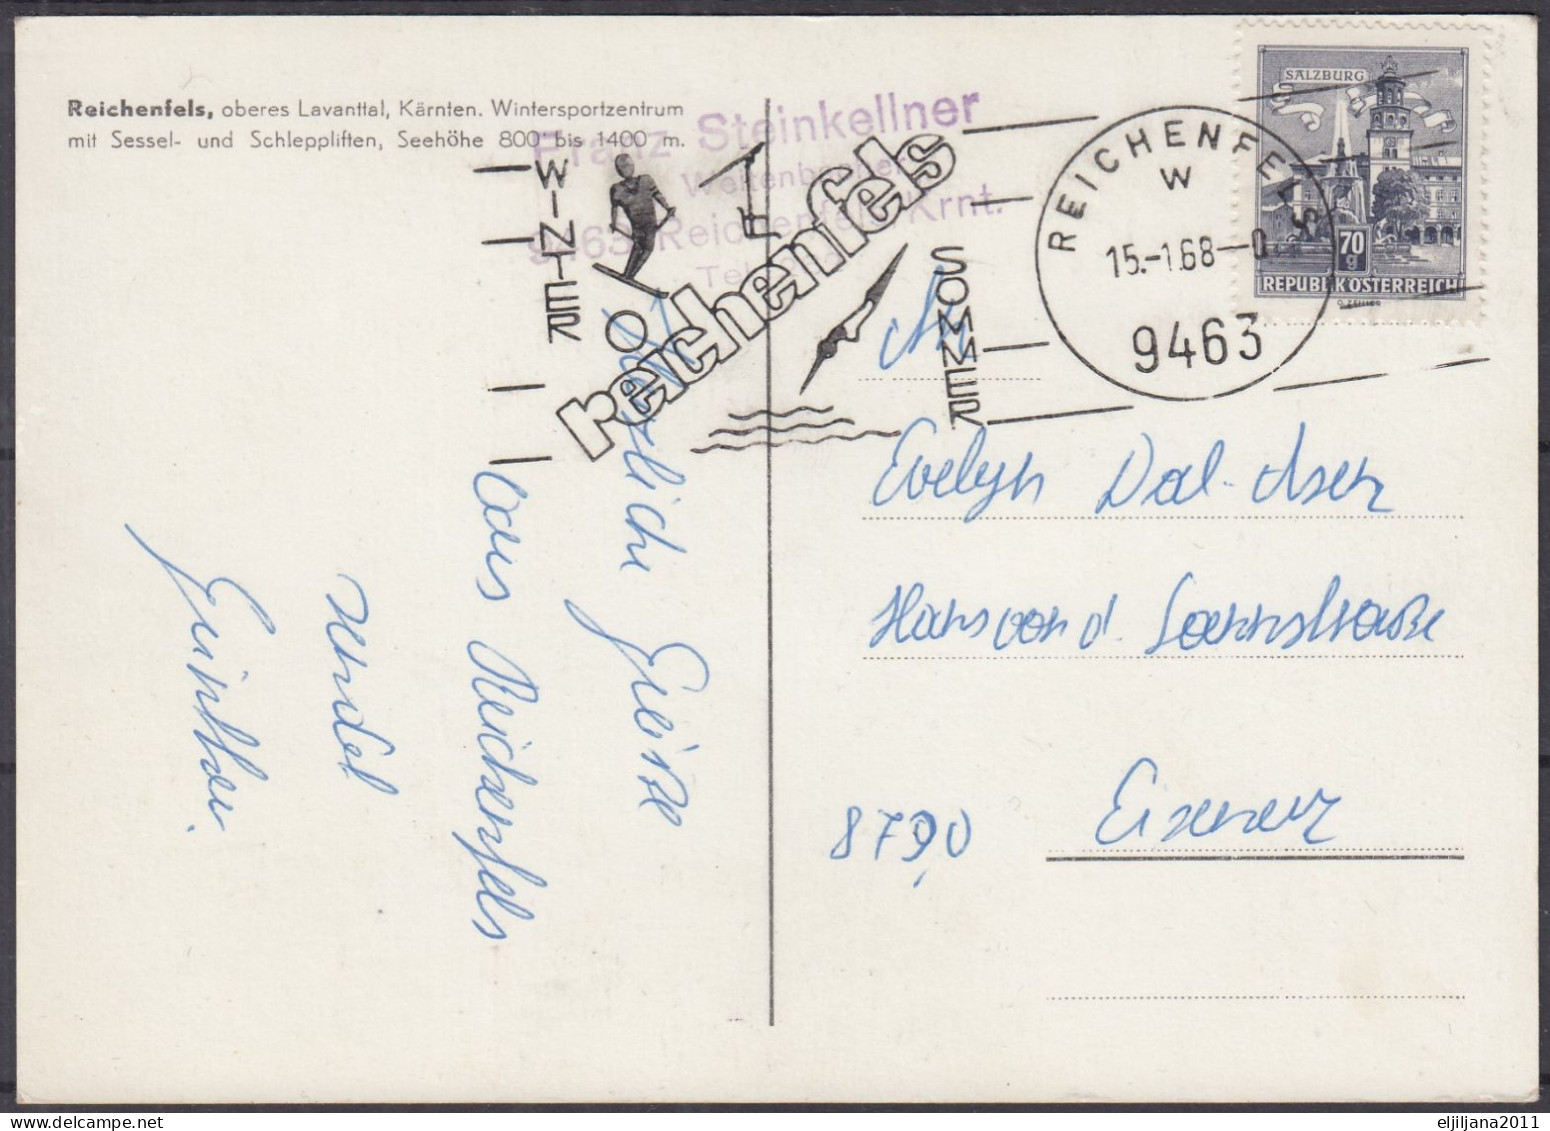 Reichenfels, oberes Lavanttal, Kärnten. Wintersportzentrum
mit Sessel- und Schleppliften, Seehöhe 800 bis 1400 m.
Franz Steinkellner
9463 Reichenfels, Krnt.
WINTER
reichenfels
SOMMER
REICHENFELS
W
15.-1.68-0
9463
SALZBURG
70
g
REPUBLIK ÖSTERREICH
Herzliche Grüsse
aus Reichenfels
Günther
An
Evelyn Dal-Asen
Eisenerz
8790
eljiljana2011